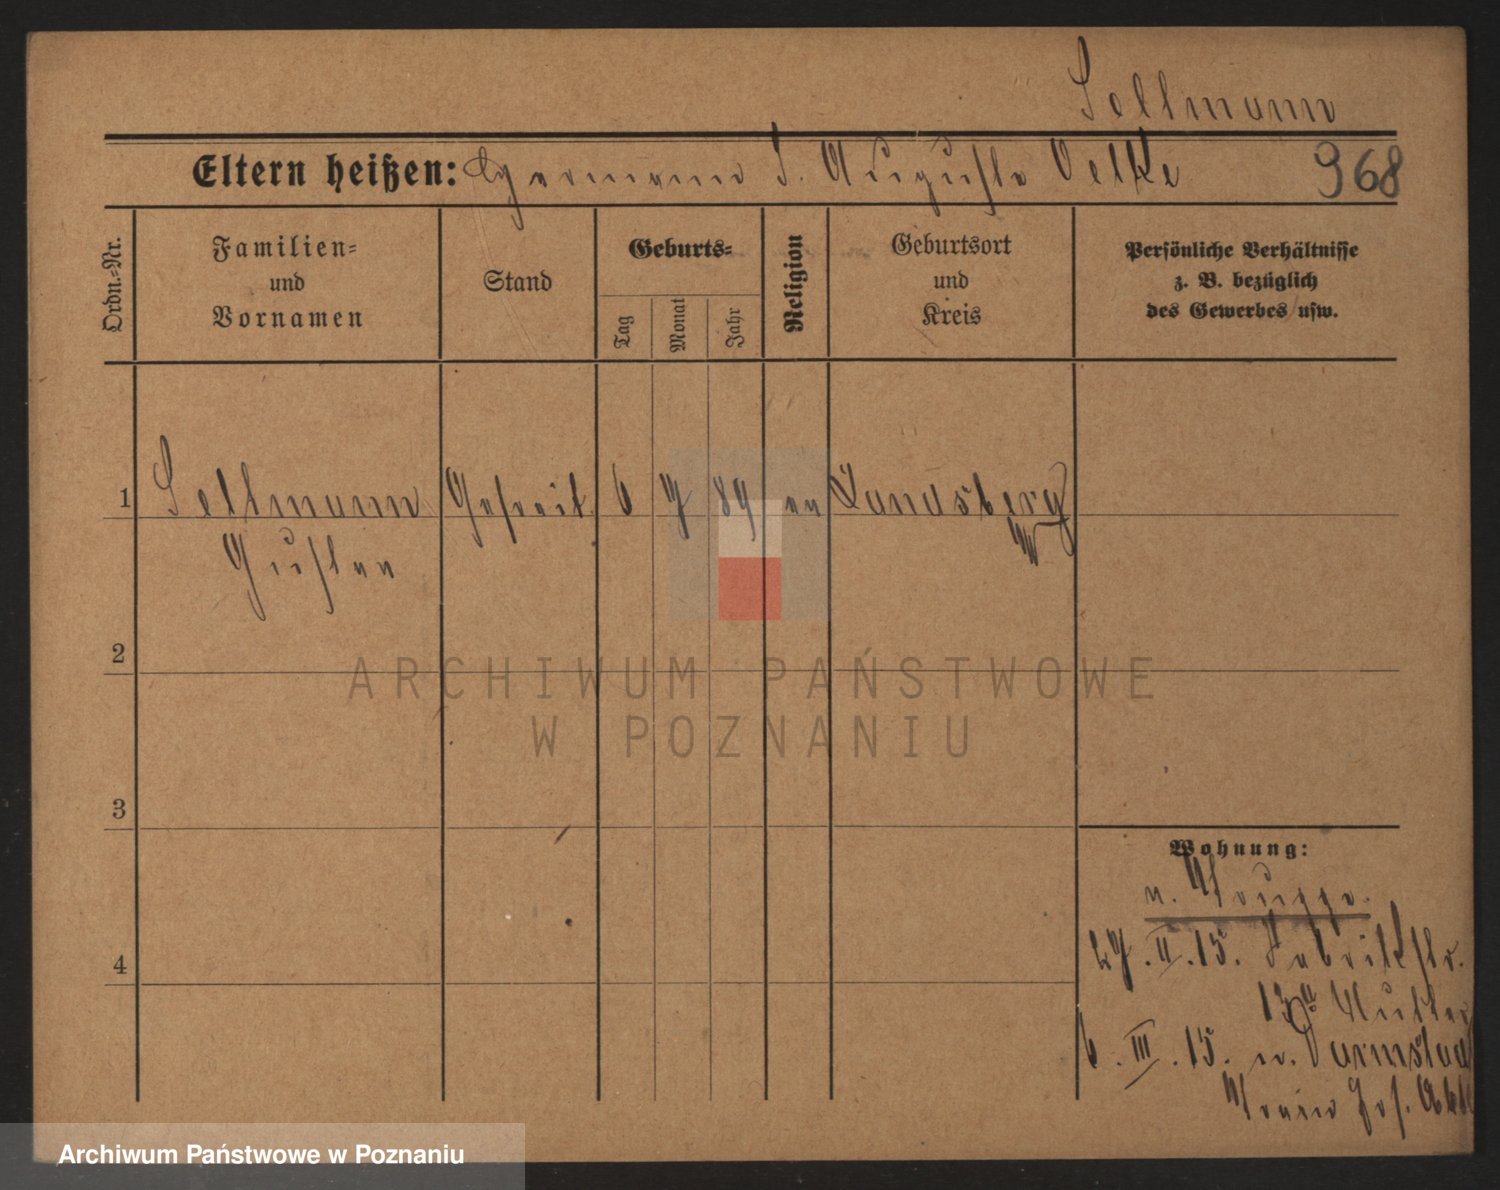 Sellmann
Eltern heißen: Hermann u. Auguste Oelke 968
Ordn.-Nr.
Familien-
und
Vornamen
Stand
Geburts-
Tag
Monat
Jahr
Religion
Geburtsort
und
Kreis
Persönliche Verhältnisse
z. B. bezüglich
des Gewerbes usw.
1 Sellmann Gefreit. 6 9 89 ev Landsberg
Gustav W
2
3
4
Wohnung:
27.II.15. Fabrikstr.
13a Mutter
6.III.15. n. Darmstad
ARCHIWUM PAŃSTWOWE
W POZNANIU
Archiwum Państwowe w Poznaniu